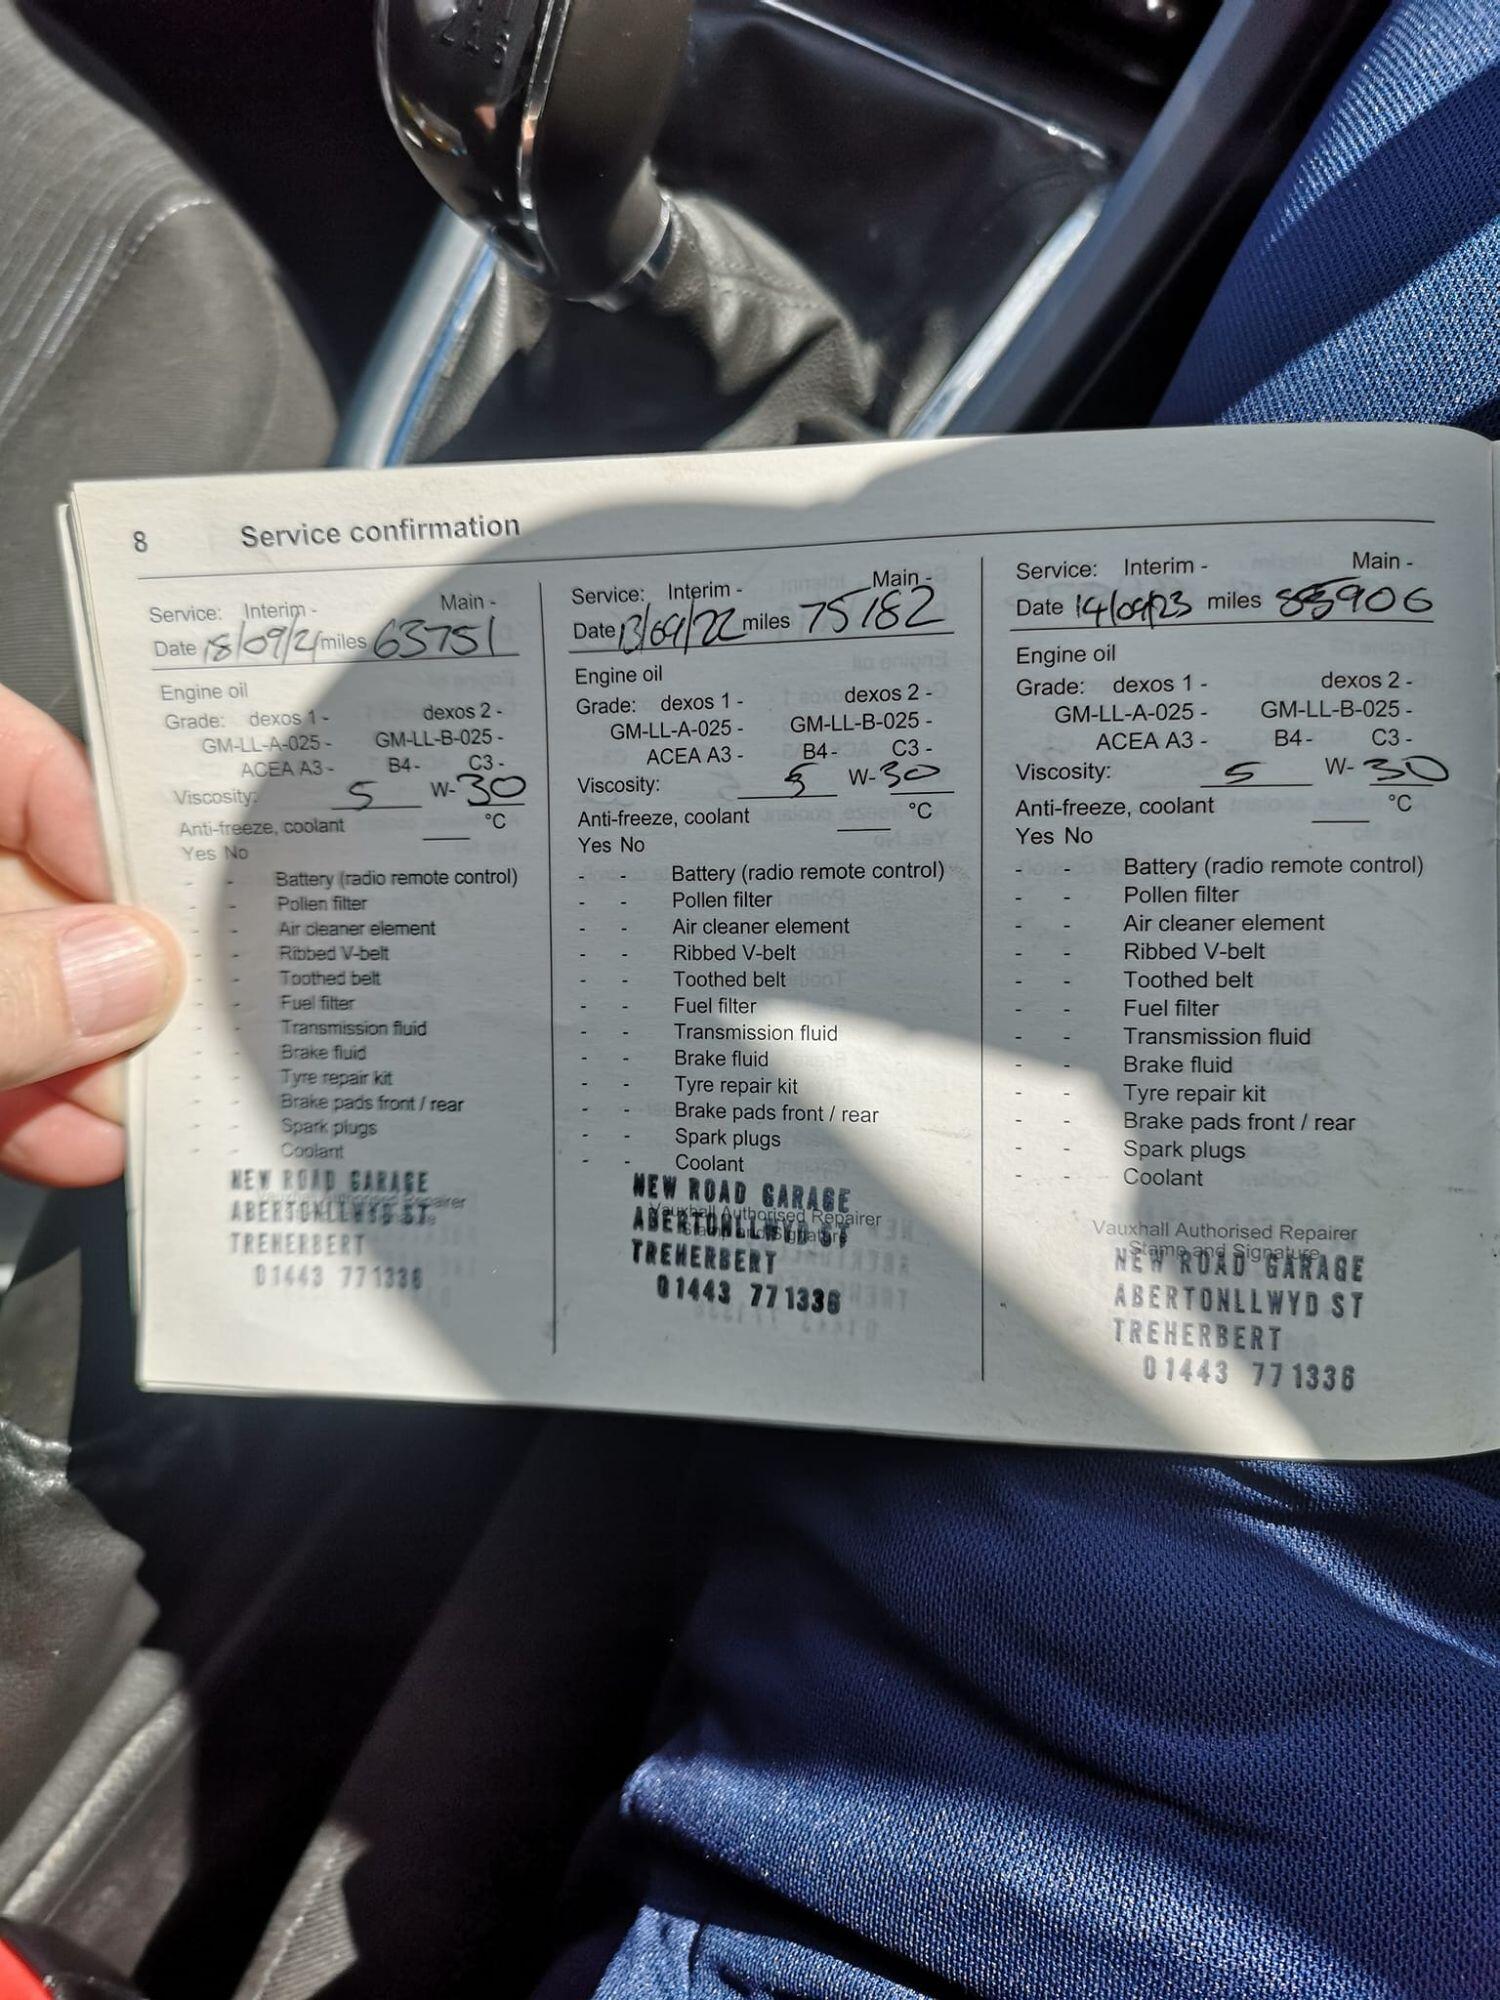 8 Service confirmation
Service: Interim - Main -
Date 18/09/21 miles 63751
Engine oil
Grade: dexos 1 - dexos 2 -
GM-LL-A-025 - GM-LL-B-025 -
ACEA A3 - B4 - C3 -
Viscosity: 5 W- 30
Anti-freeze, coolant °C
Yes No
- - Battery (radio remote control)
- - Pollen filter
- - Air cleaner element
- - Ribbed V-belt
- - Toothed belt
- - Fuel filter
- - Transmission fluid
- - Brake fluid
- - Tyre repair kit
- - Brake pads front / rear
- - Spark plugs
- - Coolant
NEW ROAD GARAGE
Authorised Repairer
ABERTONLLWYD ST.
TREHERBERT
01443 771336
Service: Interim - Main -
Date 13/09/22 miles 75182
Engine oil
Grade: dexos 1 - dexos 2 -
GM-LL-A-025 - GM-LL-B-025 -
ACEA A3 - B4 - C3 -
Viscosity: 5 W- 30
Anti-freeze, coolant °C
Yes No
- - Battery (radio remote control)
- - Pollen filter
- - Air cleaner element
- - Ribbed V-belt
- - Toothed belt
- - Fuel filter
- - Transmission fluid
- - Brake fluid
- - Tyre repair kit
- - Brake pads front / rear
- - Spark plugs
- - Coolant
NEW ROAD GARAGE
Vauxhall Authorised Repairer
ABERTONLLWYD ST
Stamp and Signature
TREHERBERT
01443 771336
Service: Interim - Main -
Date 14/09/23 miles
Engine oil
Grade: dexos 1 - dexos 2 -
GM-LL-A-025 - GM-LL-B-025 -
ACEA A3 - B4 - C3 -
Viscosity: 5 W- 30
Anti-freeze, coolant °C
Yes No
- - Battery (radio remote control)
- - Pollen filter
- - Air cleaner element
- - Ribbed V-belt
- - Toothed belt
- - Fuel filter
- - Transmission fluid
- - Brake fluid
- - Tyre repair kit
- - Brake pads front / rear
- - Spark plugs
- - Coolant
Vauxhall Authorised Repairer
Stamp and Signature
NEW ROAD GARAGE
ABERTONLLWYD ST
TREHERBERT
01443 771336